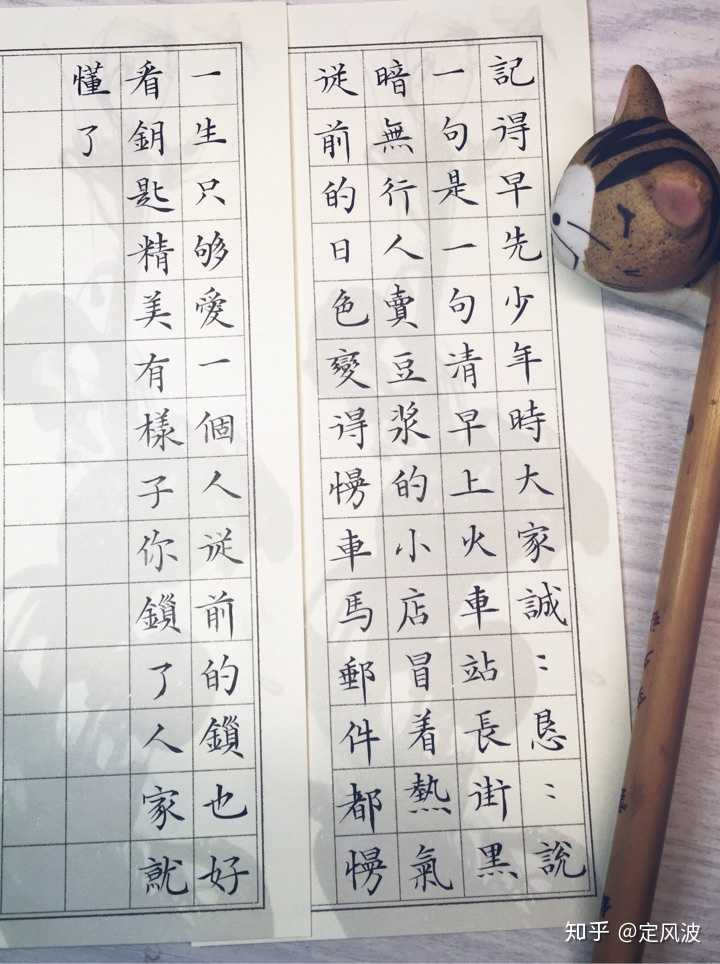 記得早先少年時大家誠〻恳〻說
一句是一句清早上火車站長街黑
暗無行人賣豆浆的小店冒着熱氣
従前的日色變得慢車馬郵件都慢
一生只够愛一個人従前的鎖也好
看鈅匙精美有樣子你鎖了人家就
懂了
知乎 @定风波